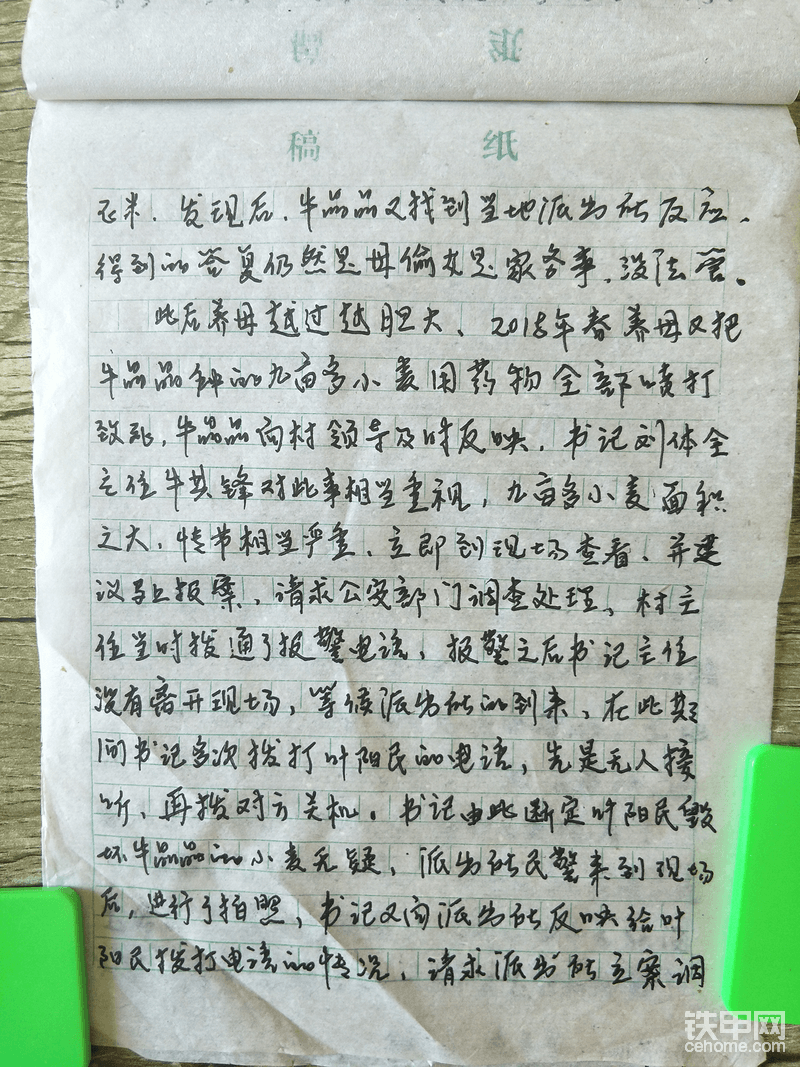 稿 纸
玉米。发现后，牛品品又找到当地派出所反应，
得到的答复仍然是母偷女是家务事，没法管。
此后养母越过越胆大、2018年春养母又把
牛品品种的九亩多小麦用药物全部喷打
致死，牛品品向村领导及时反映，书记刘体全
主任牛其锋对此事相当重视，九亩多小麦面积
之大，情节相当严重、立即到现场查看、并建
议马上报案、请求公安部门调查处理、村主
任当时拨通了报警电话，报警之后书记主任
没有离开现场，等候派出所的到来、在此期
间书记多次拨打叶阳民的电话，先是无人接
听、再拨对方关机。书记由此断定叶阳民毁
坏牛品品的小麦无疑，派出所民警来到现场
后，进行了拍照，书记又向派出所反映给叶
阳民拨打电话的情况，请求派出所立案调
铁甲网
cehome.com